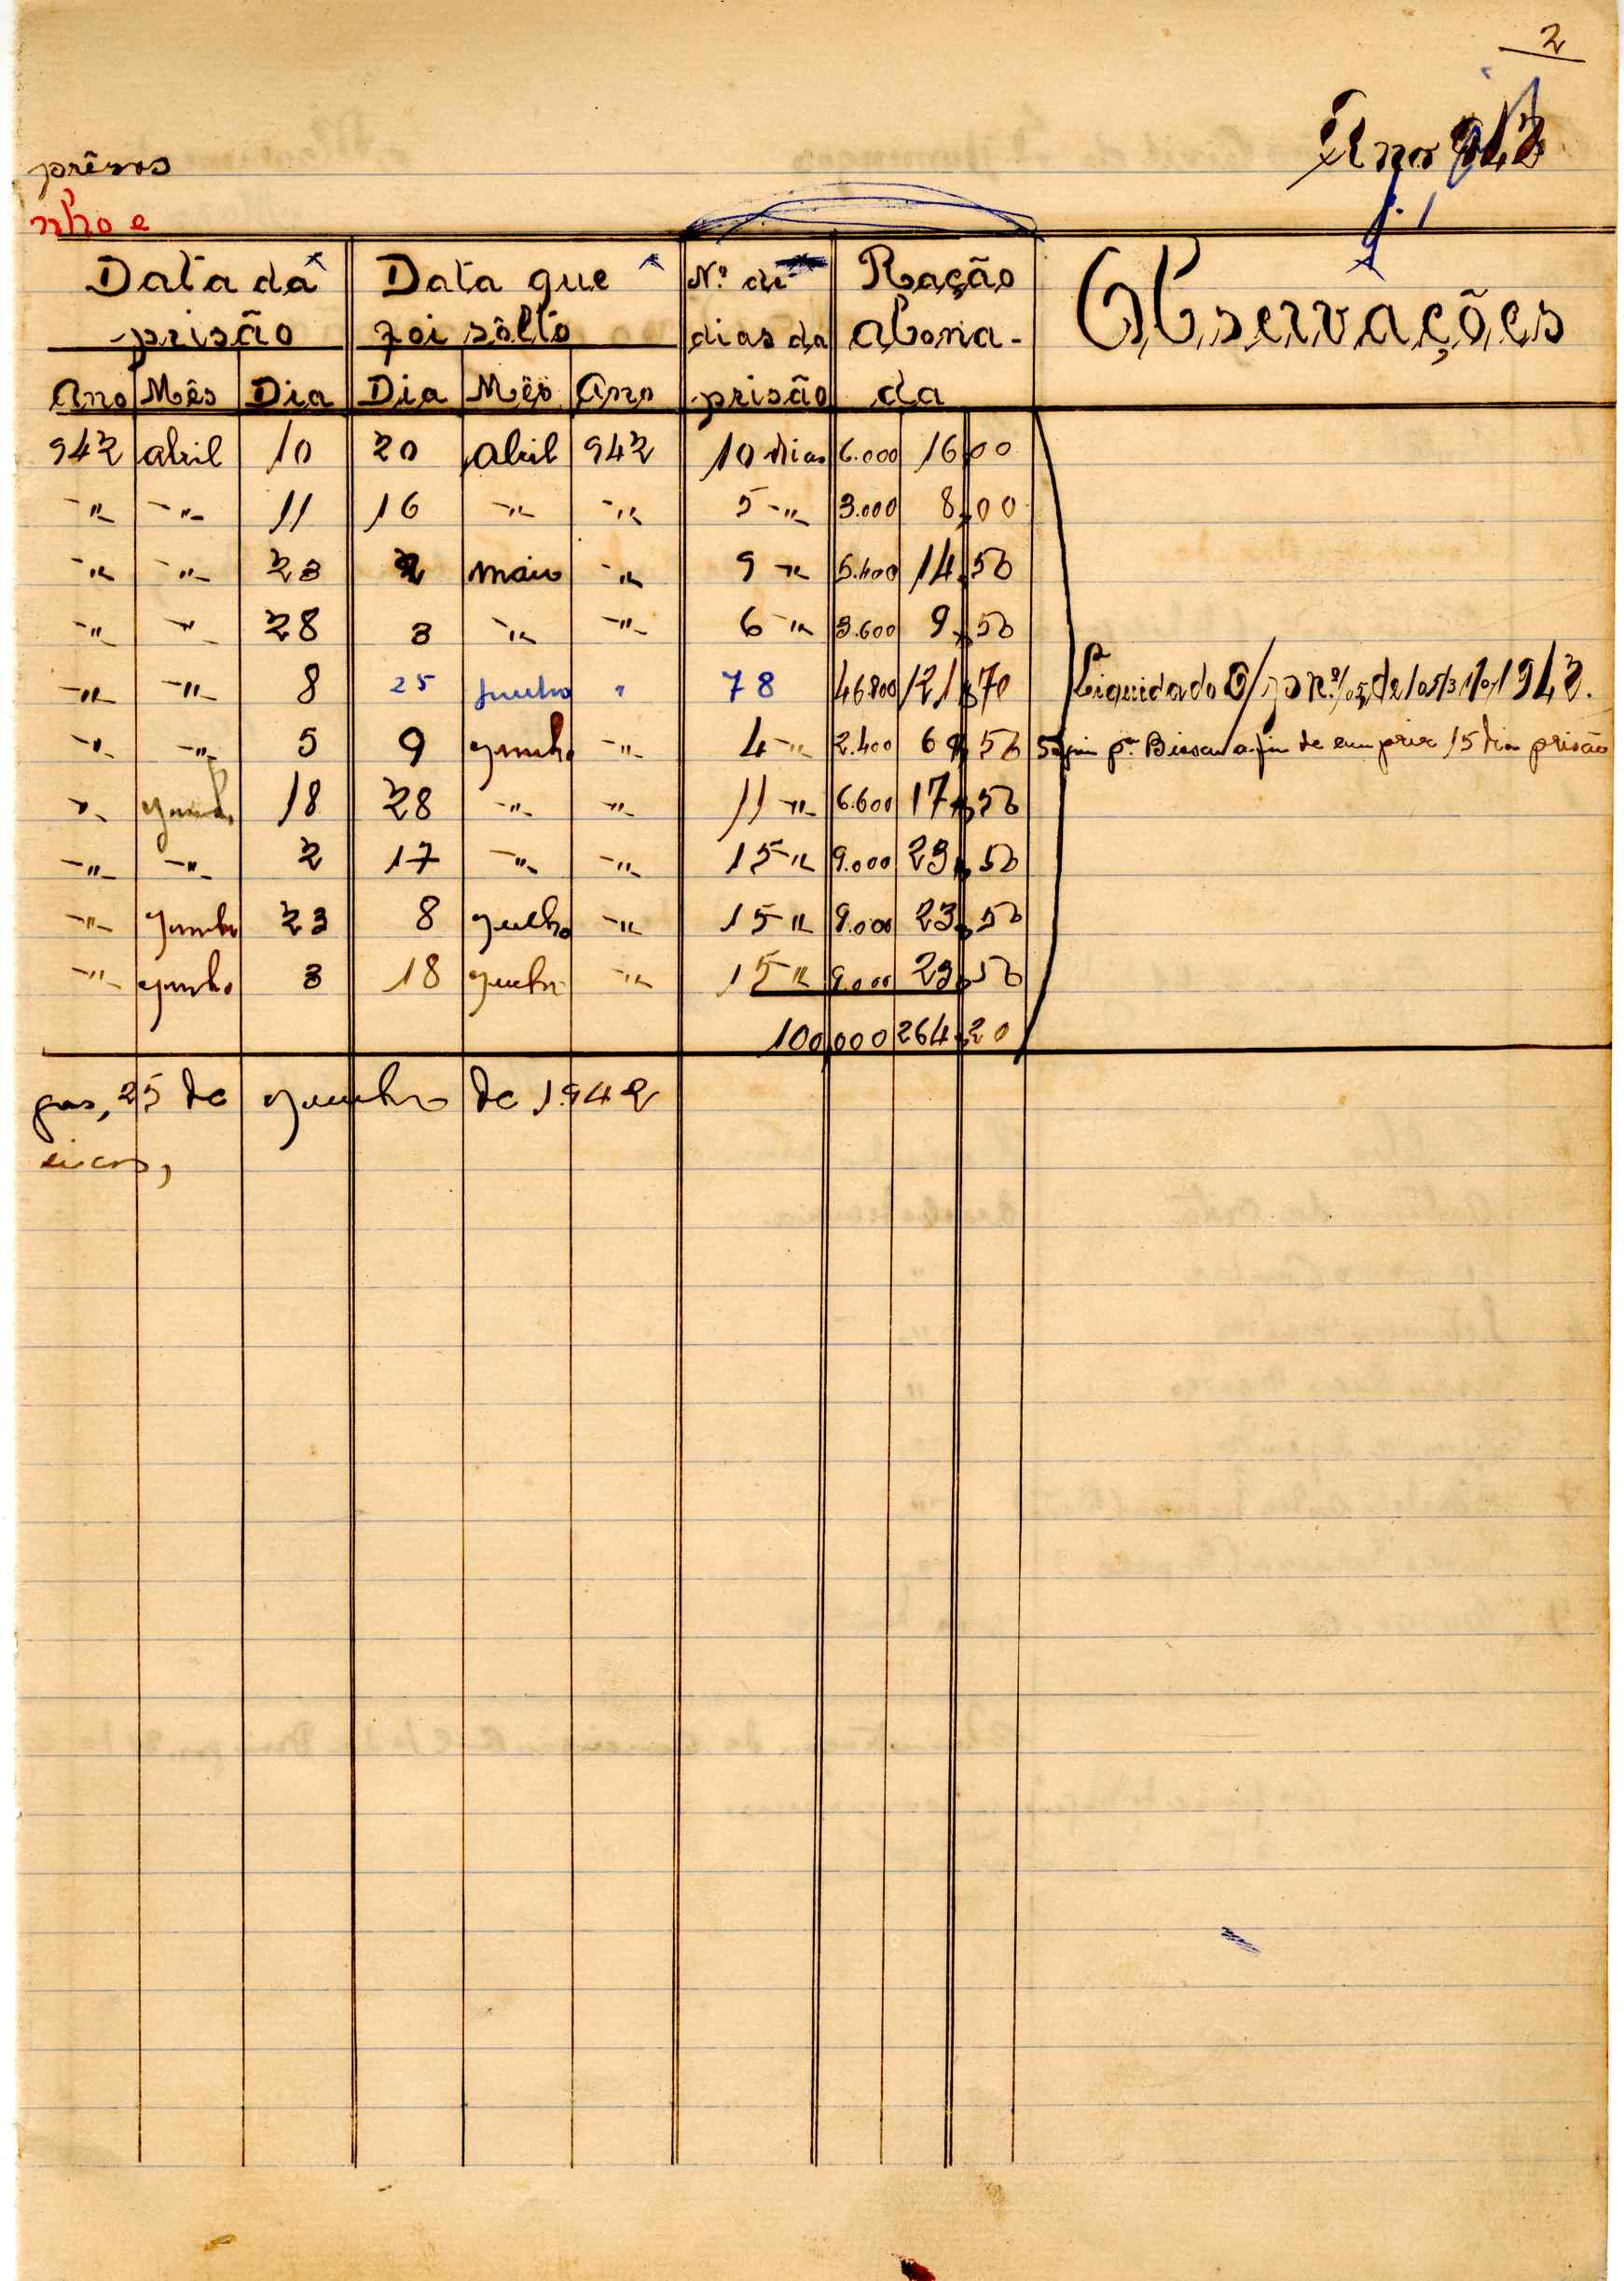 2
Ano 942
prêsos
nho e
Data da prisão Data que foi sôlto Nº de dias da prisão Ração abona-da Observações
Ano Mês Dia Dia Mês Ano
942 abril 10 20 abril 942 10 dias 6.000 16,00
-"- -"- 11 16 -"- -"- 5 -"- 3.000 8,00
-"- -"- 23 2 maio -"- 9 -"- 5.400 14,50
-"- -"- 28 3 -"- -"- 6 -"- 3.600 9,50
-"- -"- 8 25 Junho " 78 46.800 121,70 Liquidado de 1943.
-"- -"- 5 9 junho -"- 4 -"- 2.400 6,50 pª Bissau a fim de cumprir 15 dias prisão
-"- junho 18 28 -"- -"- 11 -"- 6.600 17,50
-"- -"- 2 17 -"- -"- 15 -"- 9.000 23,50
-"- Junho 23 8 julho -"- 15 -"- 9.000 23,50
-"- junho 3 18 junho -"- 15 -"- 9.000 23,50
100,000 264,20
gos, 25 de junho de 1942